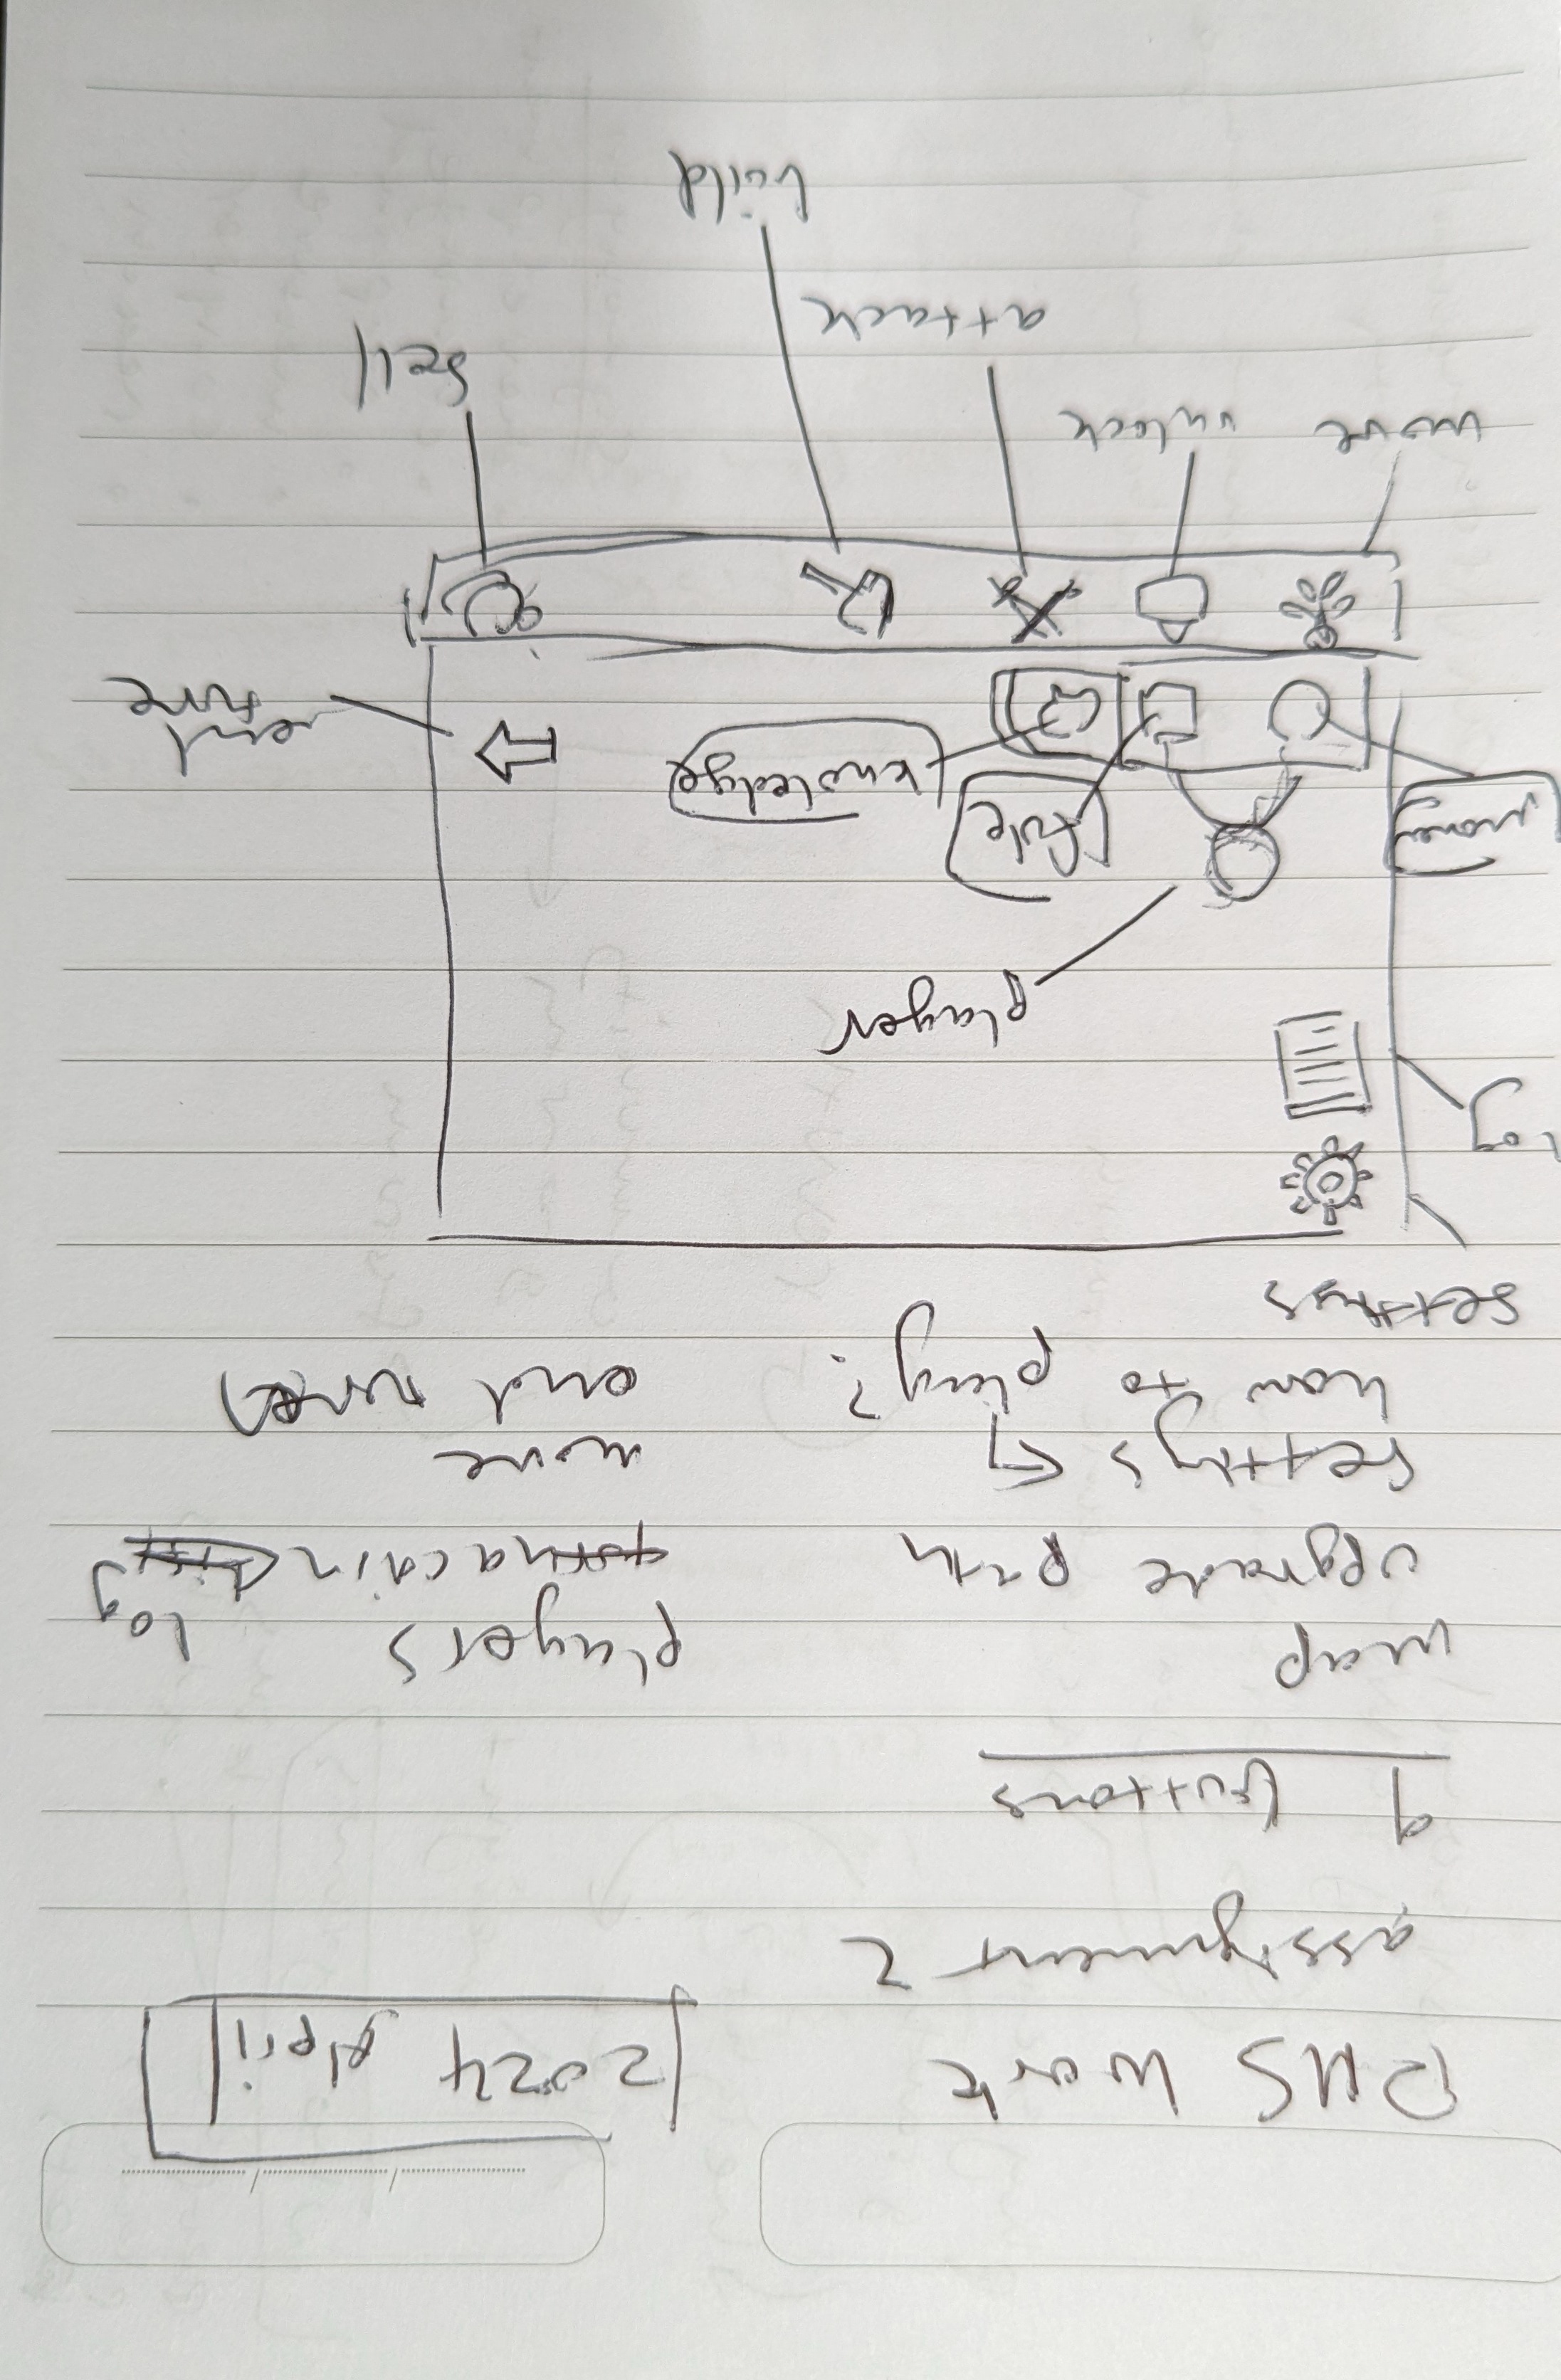 2024 April
RMS work
assignment 2
9 buttons
map
upgrade path
settings
how to play?
players
log
move
end
settings
log
player
money
fule
knoledge
end
ture
move
unlock
attack
sell
build